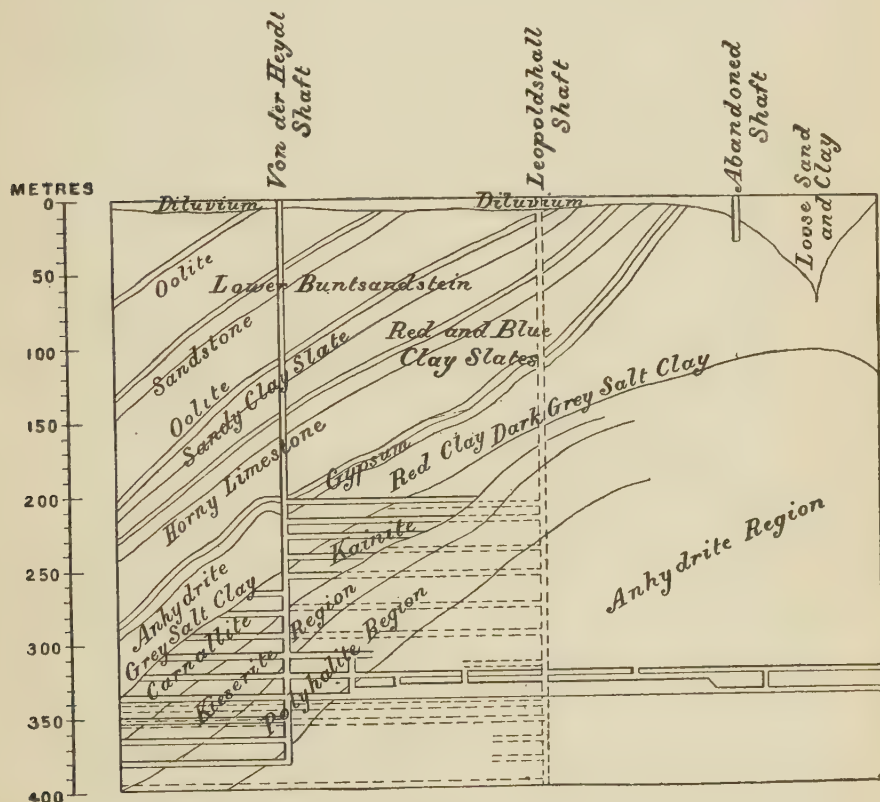 Von der Heydt
Shaft
Leopoldshall
Shaft
Abandoned
Shaft
Loose Sand
and Clay
METRES
0
50
100
150
200
250
300
350
400
Diluvium
Diluvium
Oolite
Lower Buntsandstein
Sandstone
Red and Blue
Clay Slates
Oolite
Sandy Clay Slate
Horny Limestone
Gypsum
Red Clay
Dark Grey Salt Clay
Kainite
Anhydrite
Grey Salt Clay
Carnallite
Kieserite Region
Polyhalite Region
Anhydrite Region